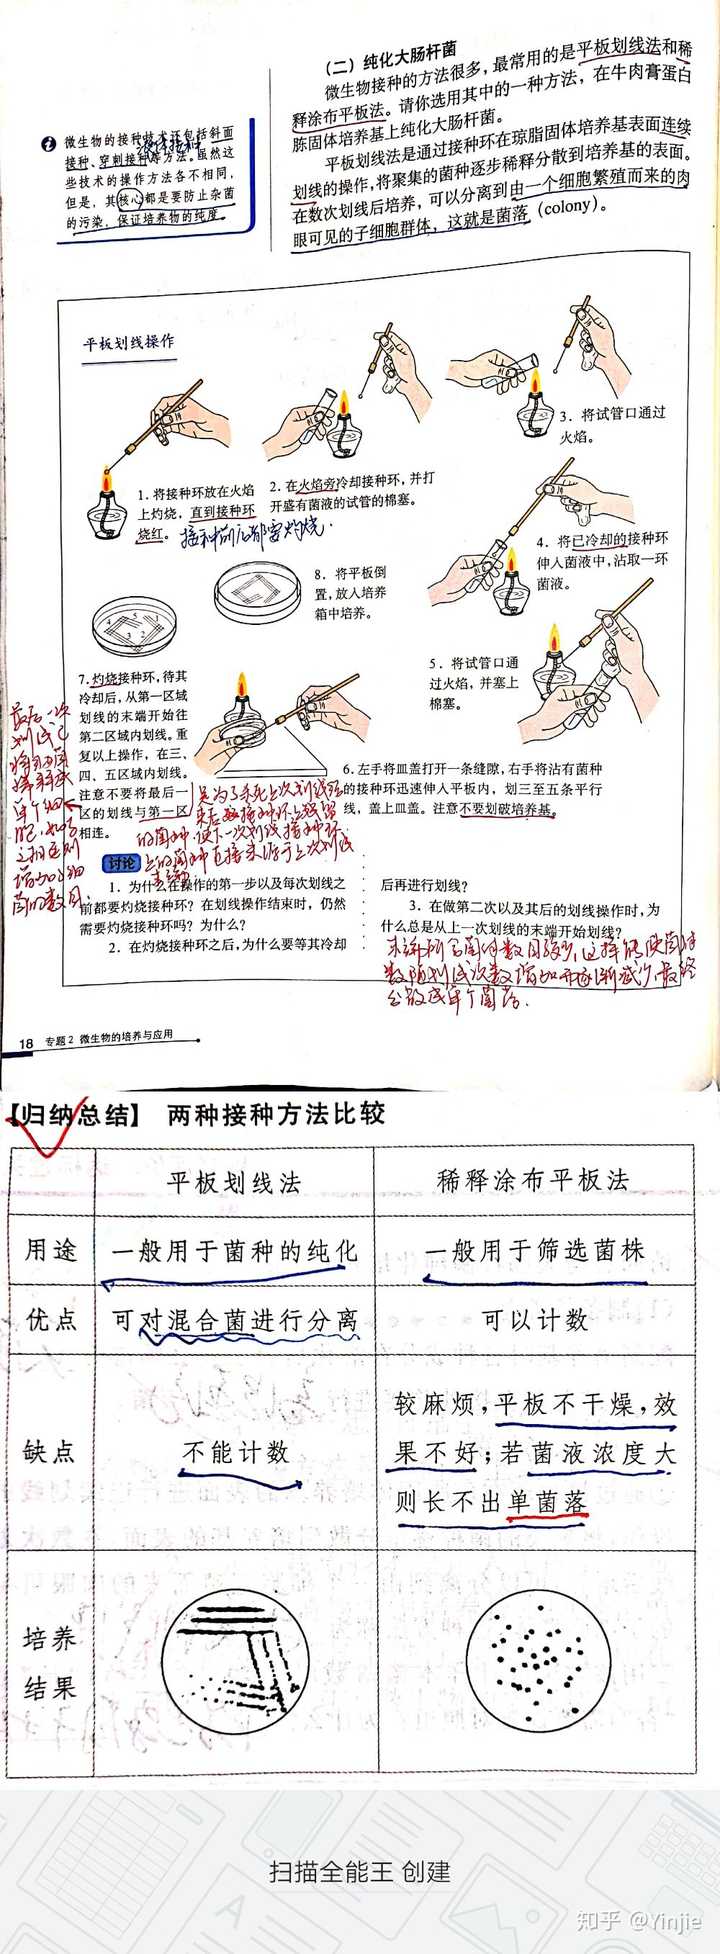 (二)纯化大肠杆菌
微生物接种的方法很多,最常用的是平板划线法和稀
释涂布平板法。请你选用其中的一种方法,在牛肉膏蛋白
胨固体培养基上纯化大肠杆菌。
平板划线法是通过接种环在琼脂固体培养基表面连续
划线的操作,将聚集的菌种逐步稀释分散到培养基的表面。
在数次划线后培养,可以分离到由一个细胞繁殖而来的肉
眼可见的子细胞群体,这就是菌落(colony)。
微生物的接种技术还包括斜面
接种、穿刺接种等方法。虽然这
些技术的操作方法各不相同,
但是,其核心都是要防止杂菌
的污染,保证培养物的纯度。
平板划线操作
1.将接种环放在火焰
上灼烧,直到接种环
烧红。
接种前后都要灼烧.
2.在火焰旁冷却接种环,并打
开盛有菌液的试管的棉塞。
3.将试管口通过
火焰。
4.将已冷却的接种环
伸入菌液中,沾取一环
菌液。
5.将试管口通
过火焰,并塞上
棉塞。
6.左手将皿盖打开一条缝隙,右手将沾有菌种
的接种环迅速伸入平板内,划三至五条平行
线,盖上皿盖。注意不要划破培养基。
7.灼烧接种环,待其
冷却后,从第一区域
划线的末端开始往
第二区域内划线。重
复以上操作,在三、
四、五区域内划线。
注意不要将最后一
区的划线与第一区
相连。
8.将平板倒
置,放入培养
箱中培养。
4 5 1
3 2
讨论
1.为什么在操作的第一步以及每次划线之
前都要灼烧接种环?在划线操作结束时,仍然
需要灼烧接种环吗?为什么?
2.在灼烧接种环之后,为什么要等其冷却
后再进行划线?
3.在做第二次以及其后的划线操作时,为
什么总是从上一次划线的末端开始划线?
末端所含菌种数目较少,这样能使菌种
数随划线次数增加而逐渐减少,最终
分散成单个菌落.
18 专题2 微生物的培养与应用
【归纳总结】 两种接种方法比较
平板划线法 稀释涂布平板法
用途 一般用于菌种的纯化 一般用于筛选菌株
优点 可对混合菌进行分离 可以计数
缺点 不能计数 较麻烦,平板不干燥,效
果不好;若菌液浓度大
则长不出单菌落
培养
结果
扫描全能王 创建
知乎 @Yinjie